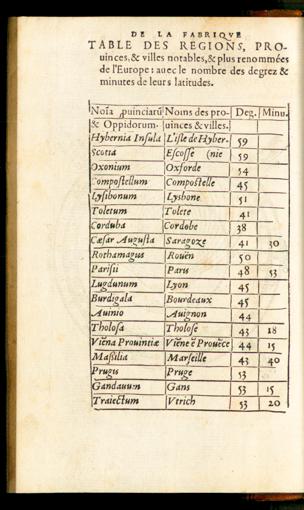 DE LA FABRIQVE
TABLE DES REGIONS, PRO-
uinces, & villes notables, & plus renommées
de l'Europe: auec le nombre des degrez &
minutes de leurs latitudes.
Noīa ꝓuinciarū Noms des pro- Deg. Minu.
& Oppidorum. uinces & villes.
Hybernia Insula L'isle de Hyber- 59
Scotia Escosse (nie 59
Oxonium Oxforde 54
Compostellum Compostelle 45
Lysibonum Lysbone 51
Toletum Tolete 41
Corduba Cordobe 38
Cæsar Augusta Saragoze 41 30
Rothamagus Rouën 50
Parisii Paris 48 53
Lugdunum Lyon 45
Burdigala Bourdeaux 45
Auinio Auignon 44
Tholosa Tholose 43 18
Viēna Prouintiæ Viēne ē Prouēce 44 15
Massilia Marseille 43 40
Prugis Pruge 53
Gandauum Gans 53 15
Traiectum Vtrich 53 20